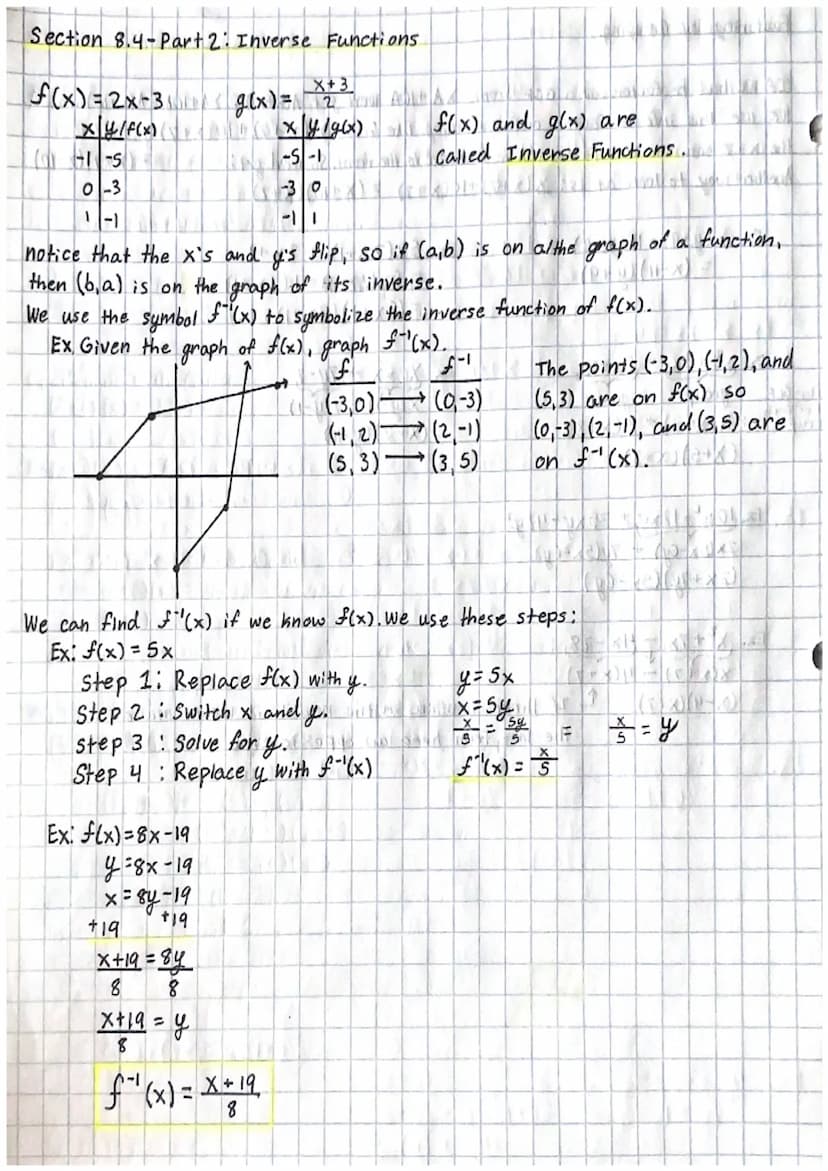 Section 8.4-Part 2: Inverse Functions
f(x) = 2x-3 g(x) = (x+3)/2
x | y/f(x) x | y/g(x) f(x) and g(x) are
-1 | -5 -5 | -1 Called Inverse Functions.
0 | -3 -3 | 0
1 | -1 -1 | 1
notice that the x's and y's flip, so if (a,b) is on a/the graph of a function,
then (b,a) is on the graph of its inverse.
We use the symbol f⁻¹(x) to symbolize the inverse function of f(x).
Ex Given the graph of f(x), graph f⁻¹(x).
f f⁻¹ The points (-3,0), (-1,2), and
(-3,0) → (0,-3) (5,3) are on f(x) so
(-1,2) → (2,-1) (0,-3), (2,-1), and (3,5) are
(5,3) → (3,5) on f⁻¹(x).
We can find f⁻¹(x) if we know f(x). We use these steps:
Ex: f(x) = 5x
Step 1: Replace f(x) with y. y = 5x
Step 2 : Switch x and y. x = 5y
step 3 : Solve for y. x/5 = 5y/5 = x/5 = y
Step 4 : Replace y with f⁻¹(x) f⁻¹(x) = x/5
Ex: f(x)=8x-19
y=8x-19
x=8y-19
+19 +19
x+19 = 8y
8 8
x+19 = y
8
f⁻¹(x) = (x+19)/8